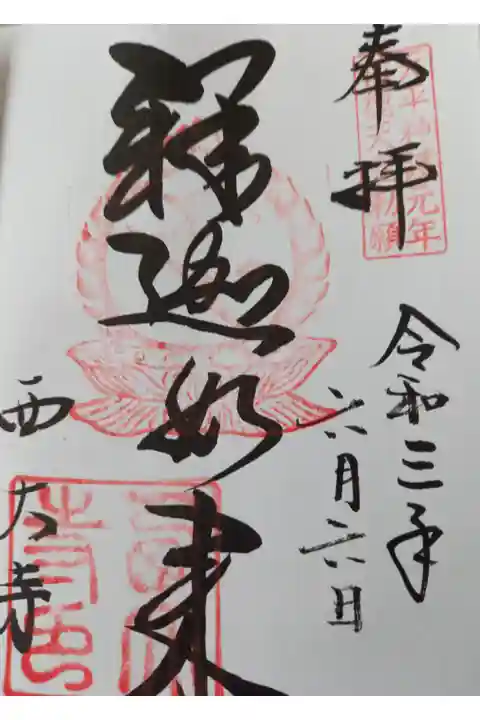 奉拝
令和三年
六月六日
釋迦如来
西大寺